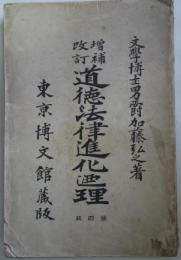 文學博士男爵加藤弘之著
增補
改訂
道德法律進化之理
東京博文館藏版